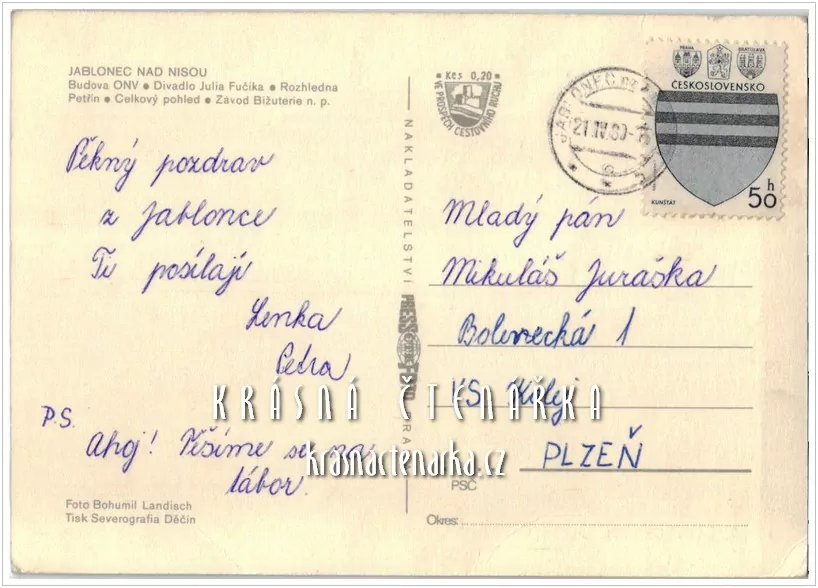 JABLONEC NAD NISOU
Budova ONV ● Divadlo Julia Fučíka ● Rozhledna
Petřín ● Celkový pohled ● Závod Bižuterie n. p.
Pěkný pozdrav
z Jablonce
Ti posílají
Lenka
Petra
P.S.
Ahoj! Těšíme se na
tábor.
Foto Bohumil Landisch
Tisk Severografia Děčín
Kčs 0,20
VE PROSPĚCH CESTOVNÍHO RUCHU
NAKLADATELSTVÍ
PRAHA
JABLONEC
21.IV.80
PRAHA
BRATISLAVA
ČESKOSLOVENSKO
KUNŠTÁT
50 h
Mladý pán
Mikuláš Juraška
Bolevecká 1
VŠ Kolej
PLZEŇ
PSČ
Okres:
KRÁSNÁ ČTENÁŘKA
krasnactenarka.cz